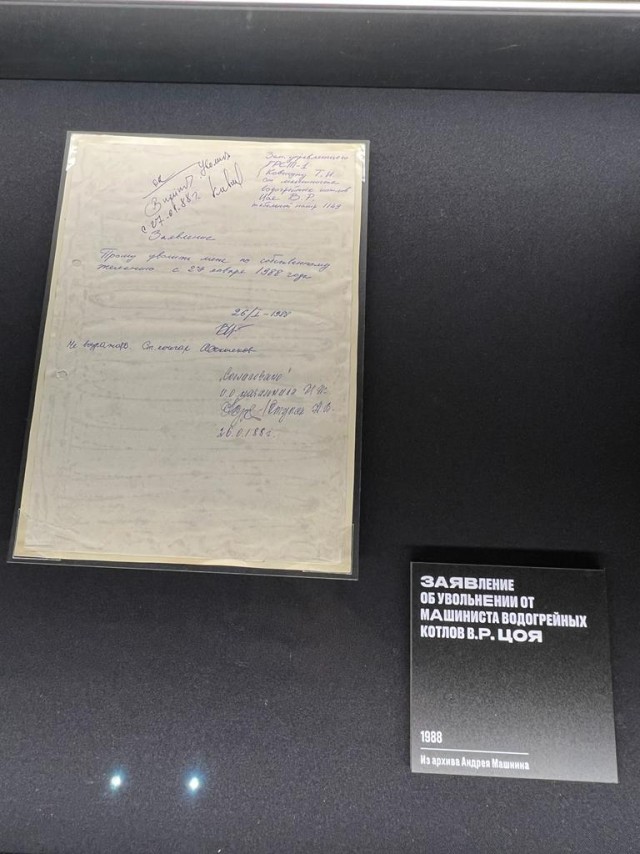 ОК
с 27.01.88г.
Зам. управляющего
ГРСТ-1
Т.И.
от машиниста
водогрейных котлов
Цоя В.Р.
табельный номер
Заявление
Прошу уволить меня по собственному
желанию с 27 января 1988 года
26/I-1988
Не возражаю Ст. мастер
"Согласовано"
26.01.88г.
ЗАЯВЛЕНИЕ
ОБ УВОЛЬНЕНИИ ОТ
МАШИНИСТА ВОДОГРЕЙНЫХ
КОТЛОВ В.Р. ЦОЯ
1988
Из архива Андрея Машнина